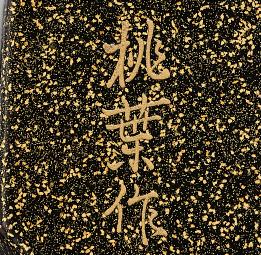 桃葉作